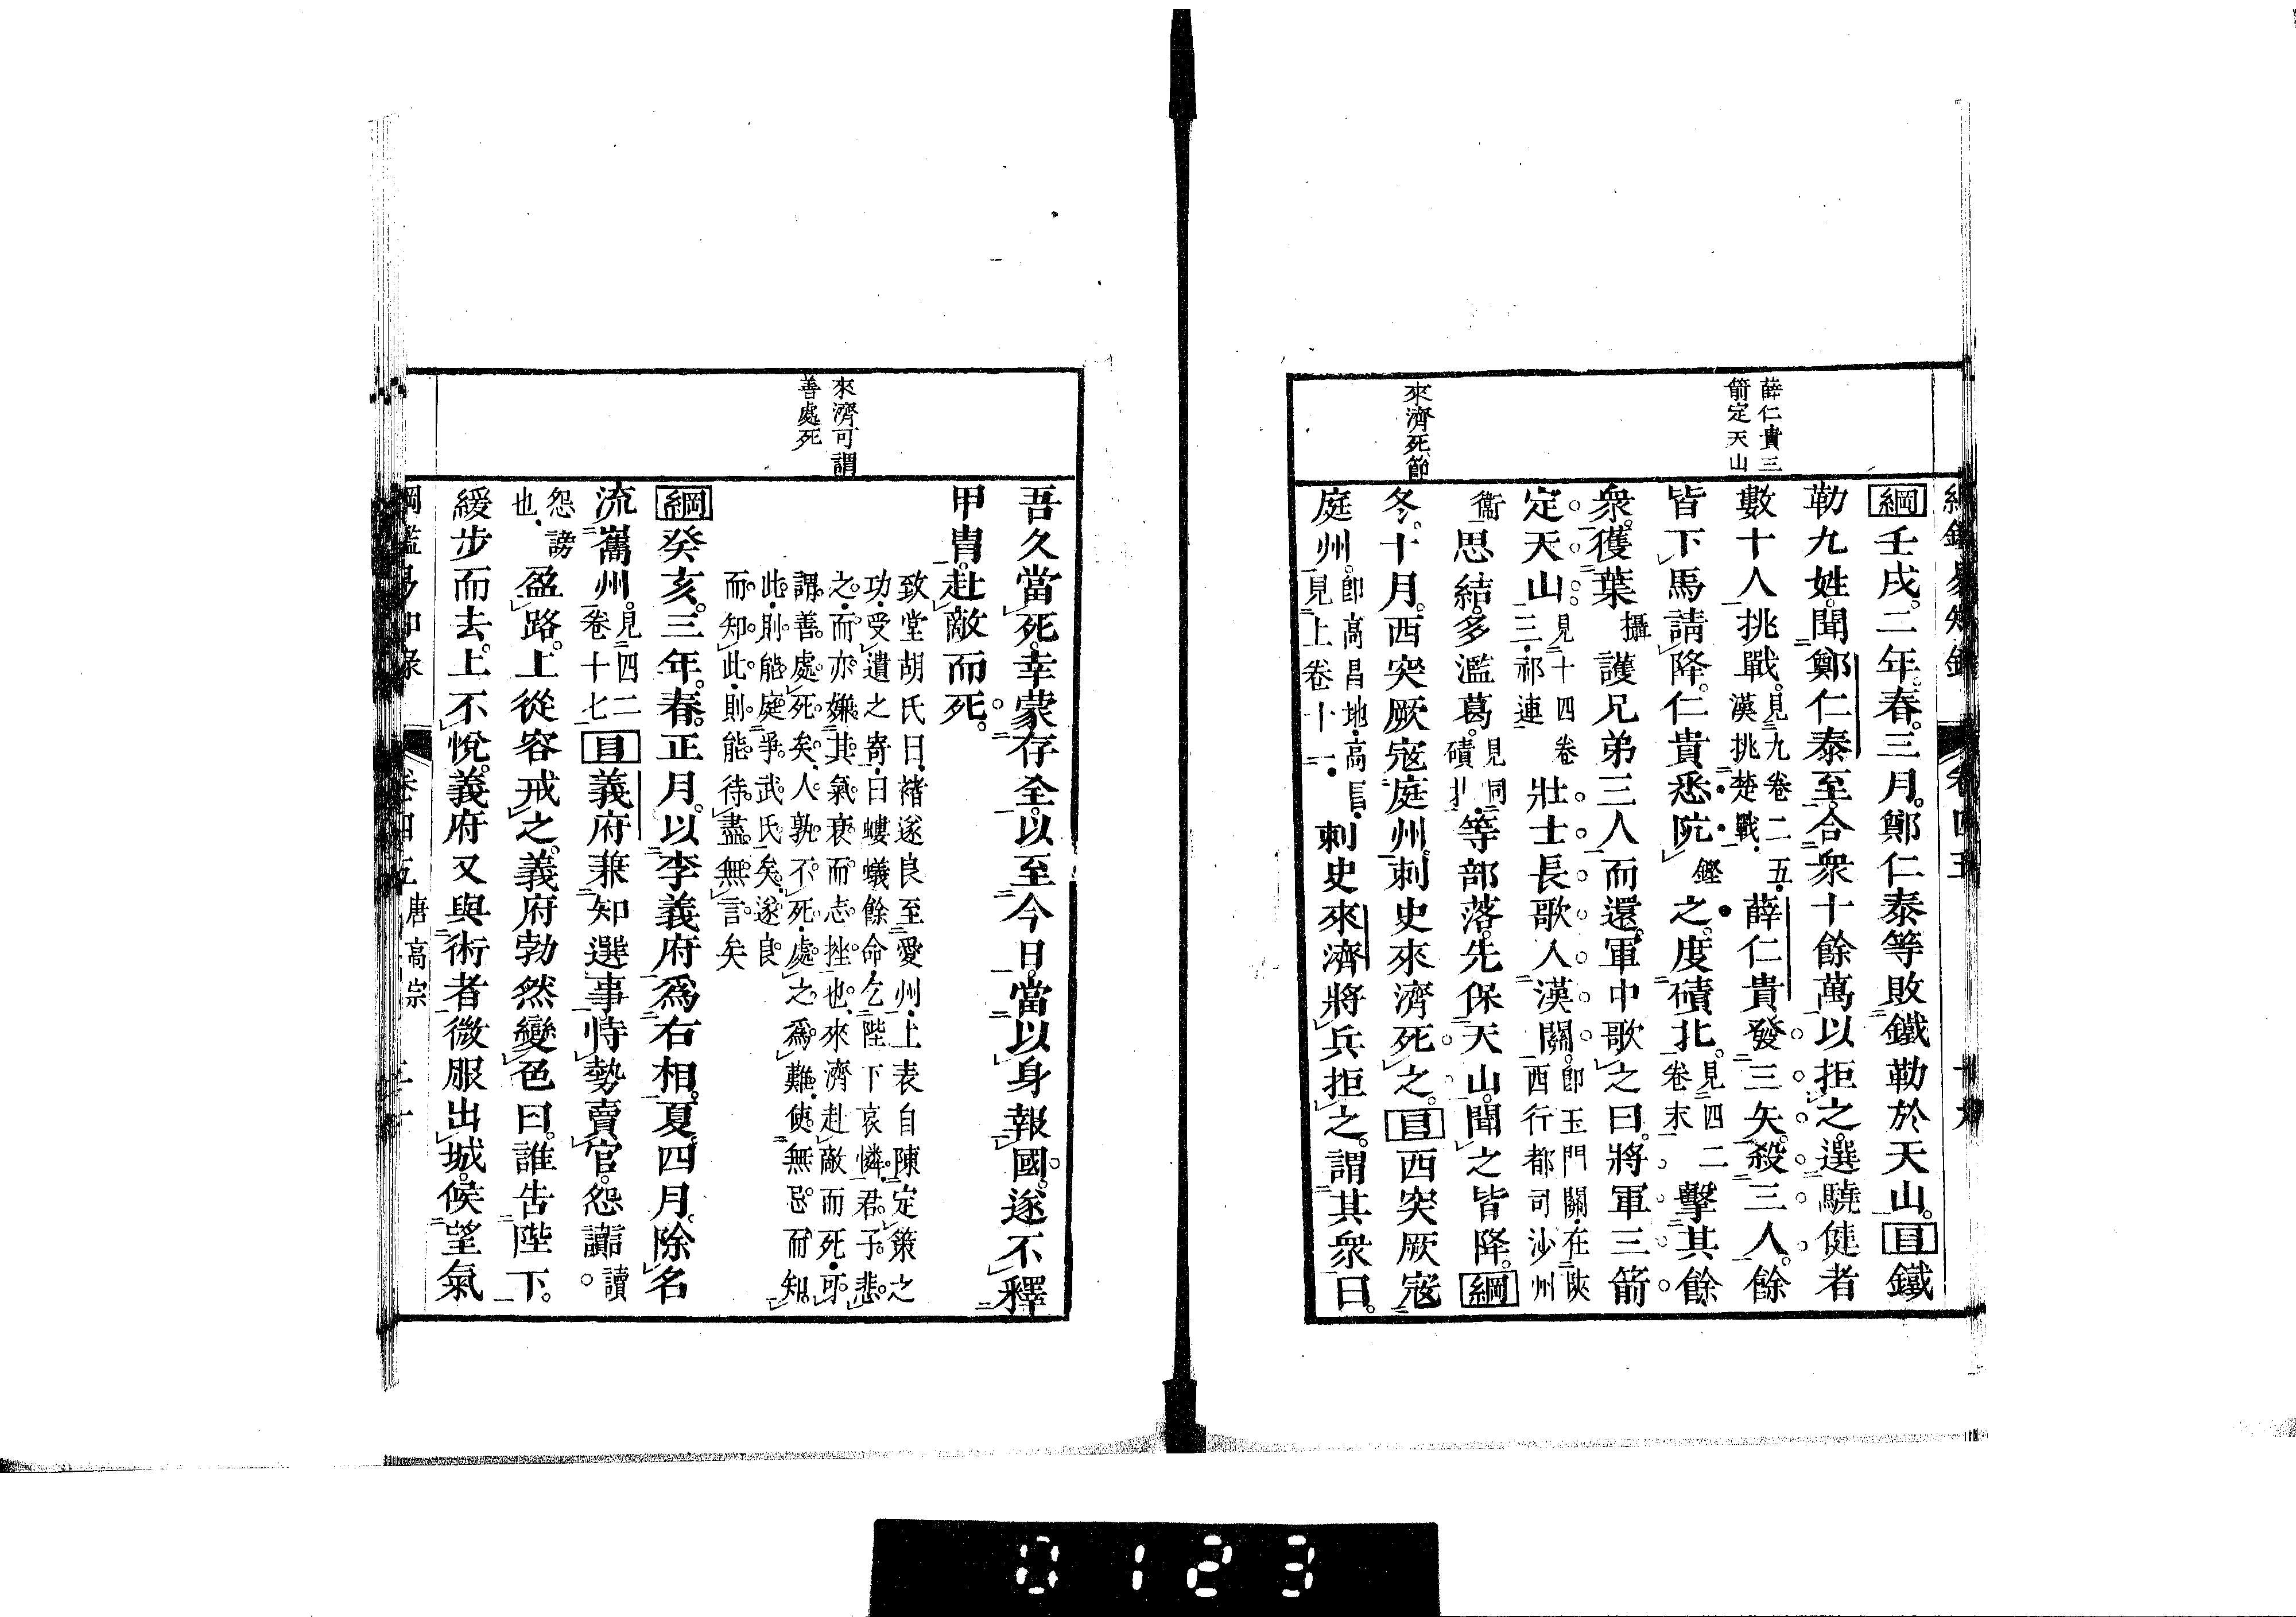 薛仁貴三
箭定天山
來濟死節
綱壬戌。二年。春。三月。鄭仁泰等敗鐵勒於天山。目鐵
勒九姓。聞鄭仁泰至。合衆十餘萬以拒之。選驍健者
數十人挑戰。見九卷二五。
漢挑楚戰。
薛仁貴發三矢。殺三人。餘
皆下馬請降。仁貴悉阬鏗之。度磧北。見四二
卷末
擊其餘
衆。獲葉攝護兄弟三人而還。軍中歌之曰。將軍三箭
定天山。見十四卷
三祁連
壯士長歌入漢關。卽玉門關。在陝
西行都司沙州
衞思結。多濫葛。見同
磧北。
等部落。先保天山。聞之皆降。綱
冬。十月。西突厥寇庭州。刺史來濟死之。目西突厥寇
庭州。卽高昌地。高昌。
見上卷十一。
刺史來濟將兵拒之。謂其衆曰。
來濟可謂
善處死
吾久當死。幸蒙存全。以至今日。當以身報國。遂不釋
甲冑。赴敵而死。
致堂胡氏曰。褚遂良至愛州。上表自陳定策之
功。受遺之寄。曰螻蟻餘命。乞陛下哀憐。君子悲
之。而亦嫌其氣衰而志挫也。來濟赴敵而死。可
謂善處死矣。人孰不死。處之爲難。使無忌而知
此。則能庭爭武氏矣。遂良
而知此。則能待盡無言矣
綱癸亥。三年。春。正月。以李義府爲右相。夏。四月。除名
流巂州。見四二
卷十七
目義府兼知選事。恃勢賣官。怨讟讀。
怨謗
也。
盈路。上從容戒之。義府勃然變色曰。誰告陛下。
緩步而去。上不悅。義府又與術者微服出城。候望氣
綱鑑易知錄 卷四五 唐高宗